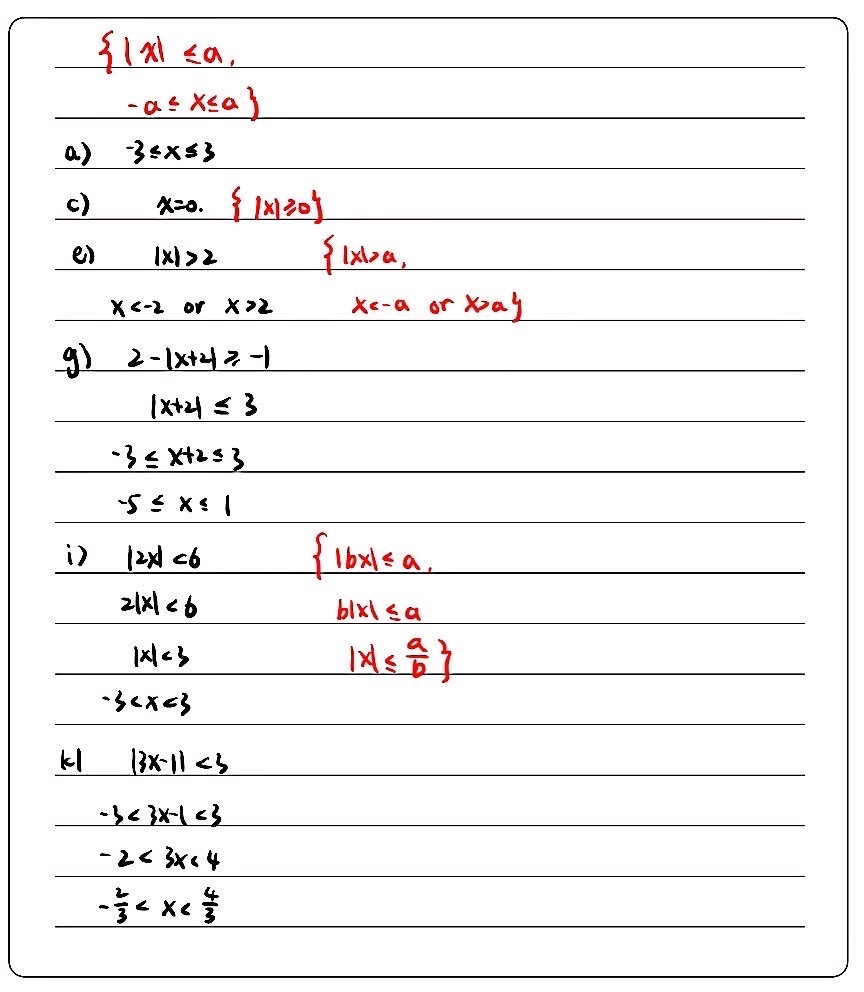 {|x| ≤ a,
-a ≤ x ≤ a}
a) -3 ≤ x ≤ 3
c) x=0. {|x| ≥ 0}
e) |x| > 2 {|x| > a,
x < -2 or x > 2 x < -a or x > a}
g) 2 - |x+2| ≥ -1
|x+2| ≤ 3
-3 ≤ x+2 ≤ 3
-5 ≤ x ≤ 1
i) |2x| < 6 {|bx| ≤ a,
2|x| < 6 b|x| ≤ a
|x| < 3 |x| ≤ a/b}
-3 < x < 3
k) |3x-1| < 3
-3 < 3x-1 < 3
-2 < 3x < 4
-2/3 < x < 4/3